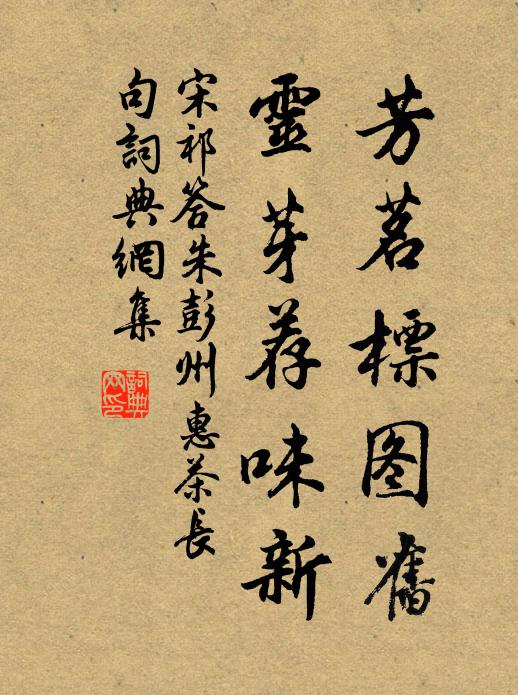 芳茗標图舊
靈芽荐味新
宋祁答朱彭州惠茶長
句詞典網集
詞典網印